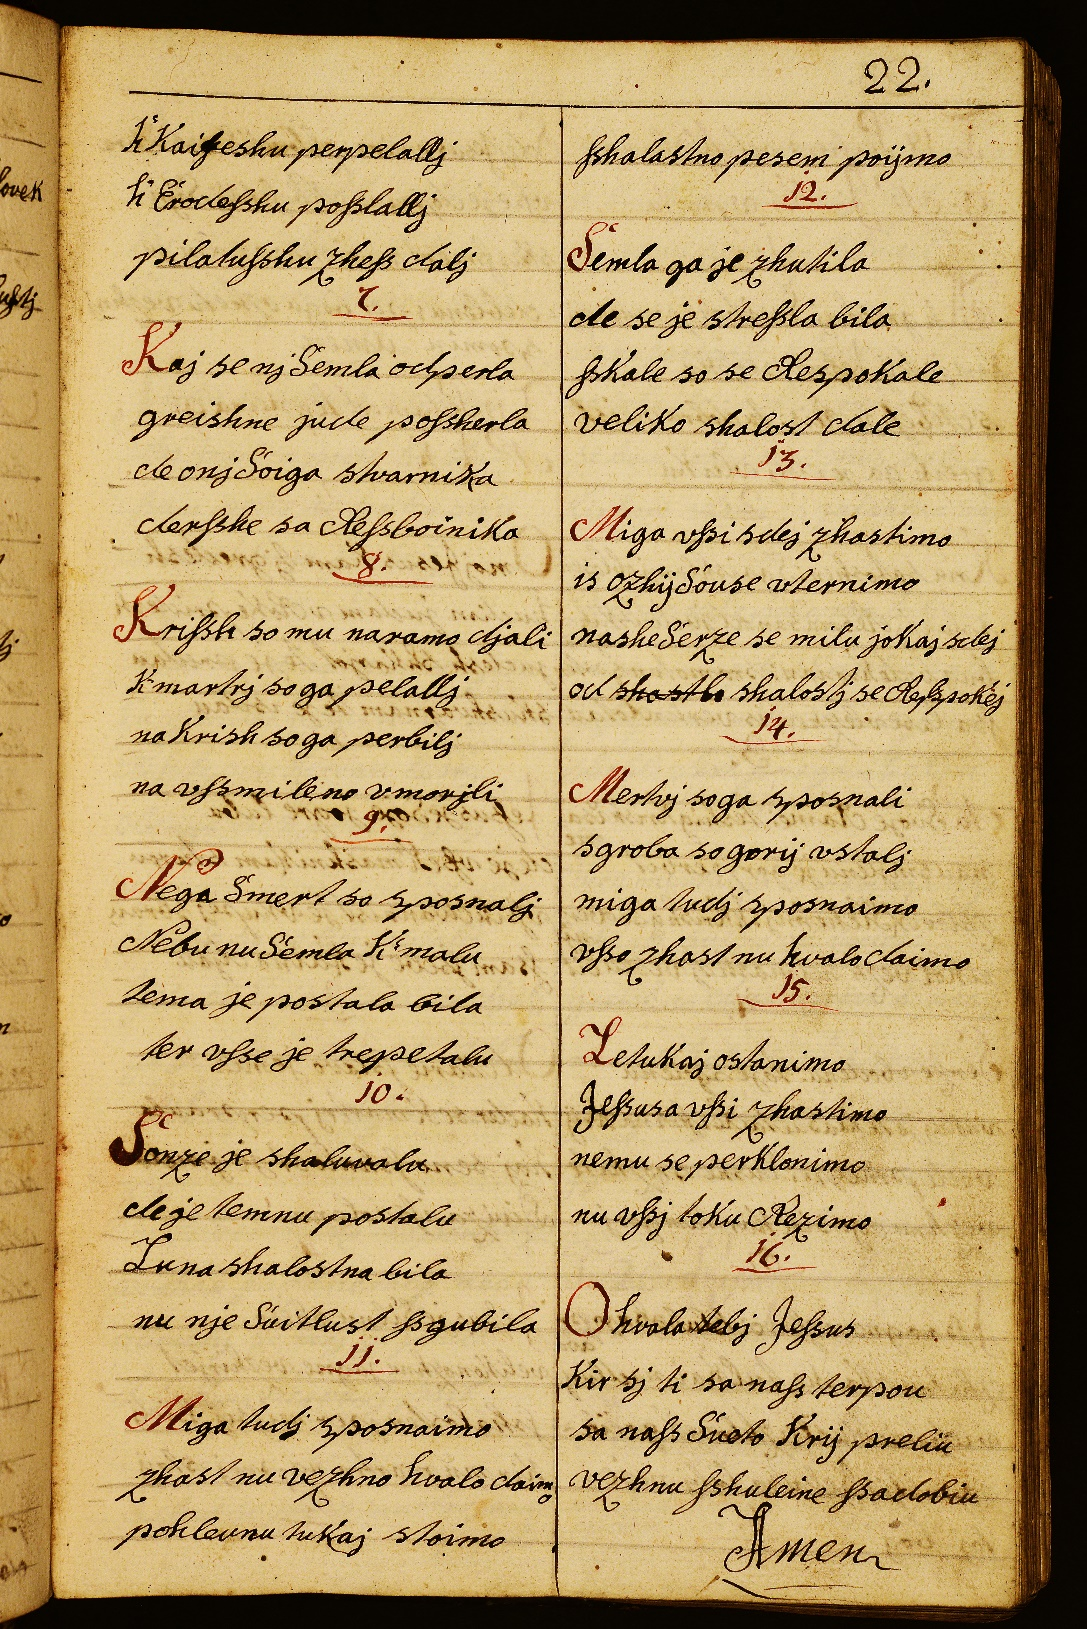 22.
h' Kaifeshu perpelallj
h' Erodeſshu poſslallj
pilatuſshu zheſs dalj
7.
Kaj se nj Semla odperla
greishne jude poſsherla
de onj Soiga stvarnika
derſshe sa Reſsboinika
8.
Kriſsh so mu naramo djali
K' martrj so ga pelallj
na Krish so ga perbilj
na vſsmileno vmorjli
9.
Nega Smert so sposnalj
Nebu nu Semla K' malu
tema je postala bila
ter vſse je trepetalu
10.
Sonze je shaluvalu
de je temnu postalu
Luna shalostna bila
nu nje Svitlust ſsgubila
11.
Miga tudj sposnaimo
zhast nu vezhno hvalo daimo
pohleunu tukaj stoimo
ſshalastno pesem poijmo
12.
Semla ga je zhutila
de se je streſsla bila
ſskale so se Respokale
veliko shalost dale
13.
Miga vſsi sdej zhastimo
is ozhij Souse vternimo
nashe Serze se milu jokaj sdej
od shastlo shalostj se Reſspokej
14.
Mertvj so ga sposnali
sgroba so gorij vstalj
miga tudj sposnaimo
vſso zhast nu hvalo daimo
15.
Letukaj ostanimo
Jeſsusa vſsi zhastimo
nemu se perklonimo
nu vſsj toku Rezimo
16.
O hvala tebj Jeſsus
Kir sj ti sa naſs terpou
sa naſs Sveto Krij preliu
vezhnu ſshuleine ſsadobiu
Amen